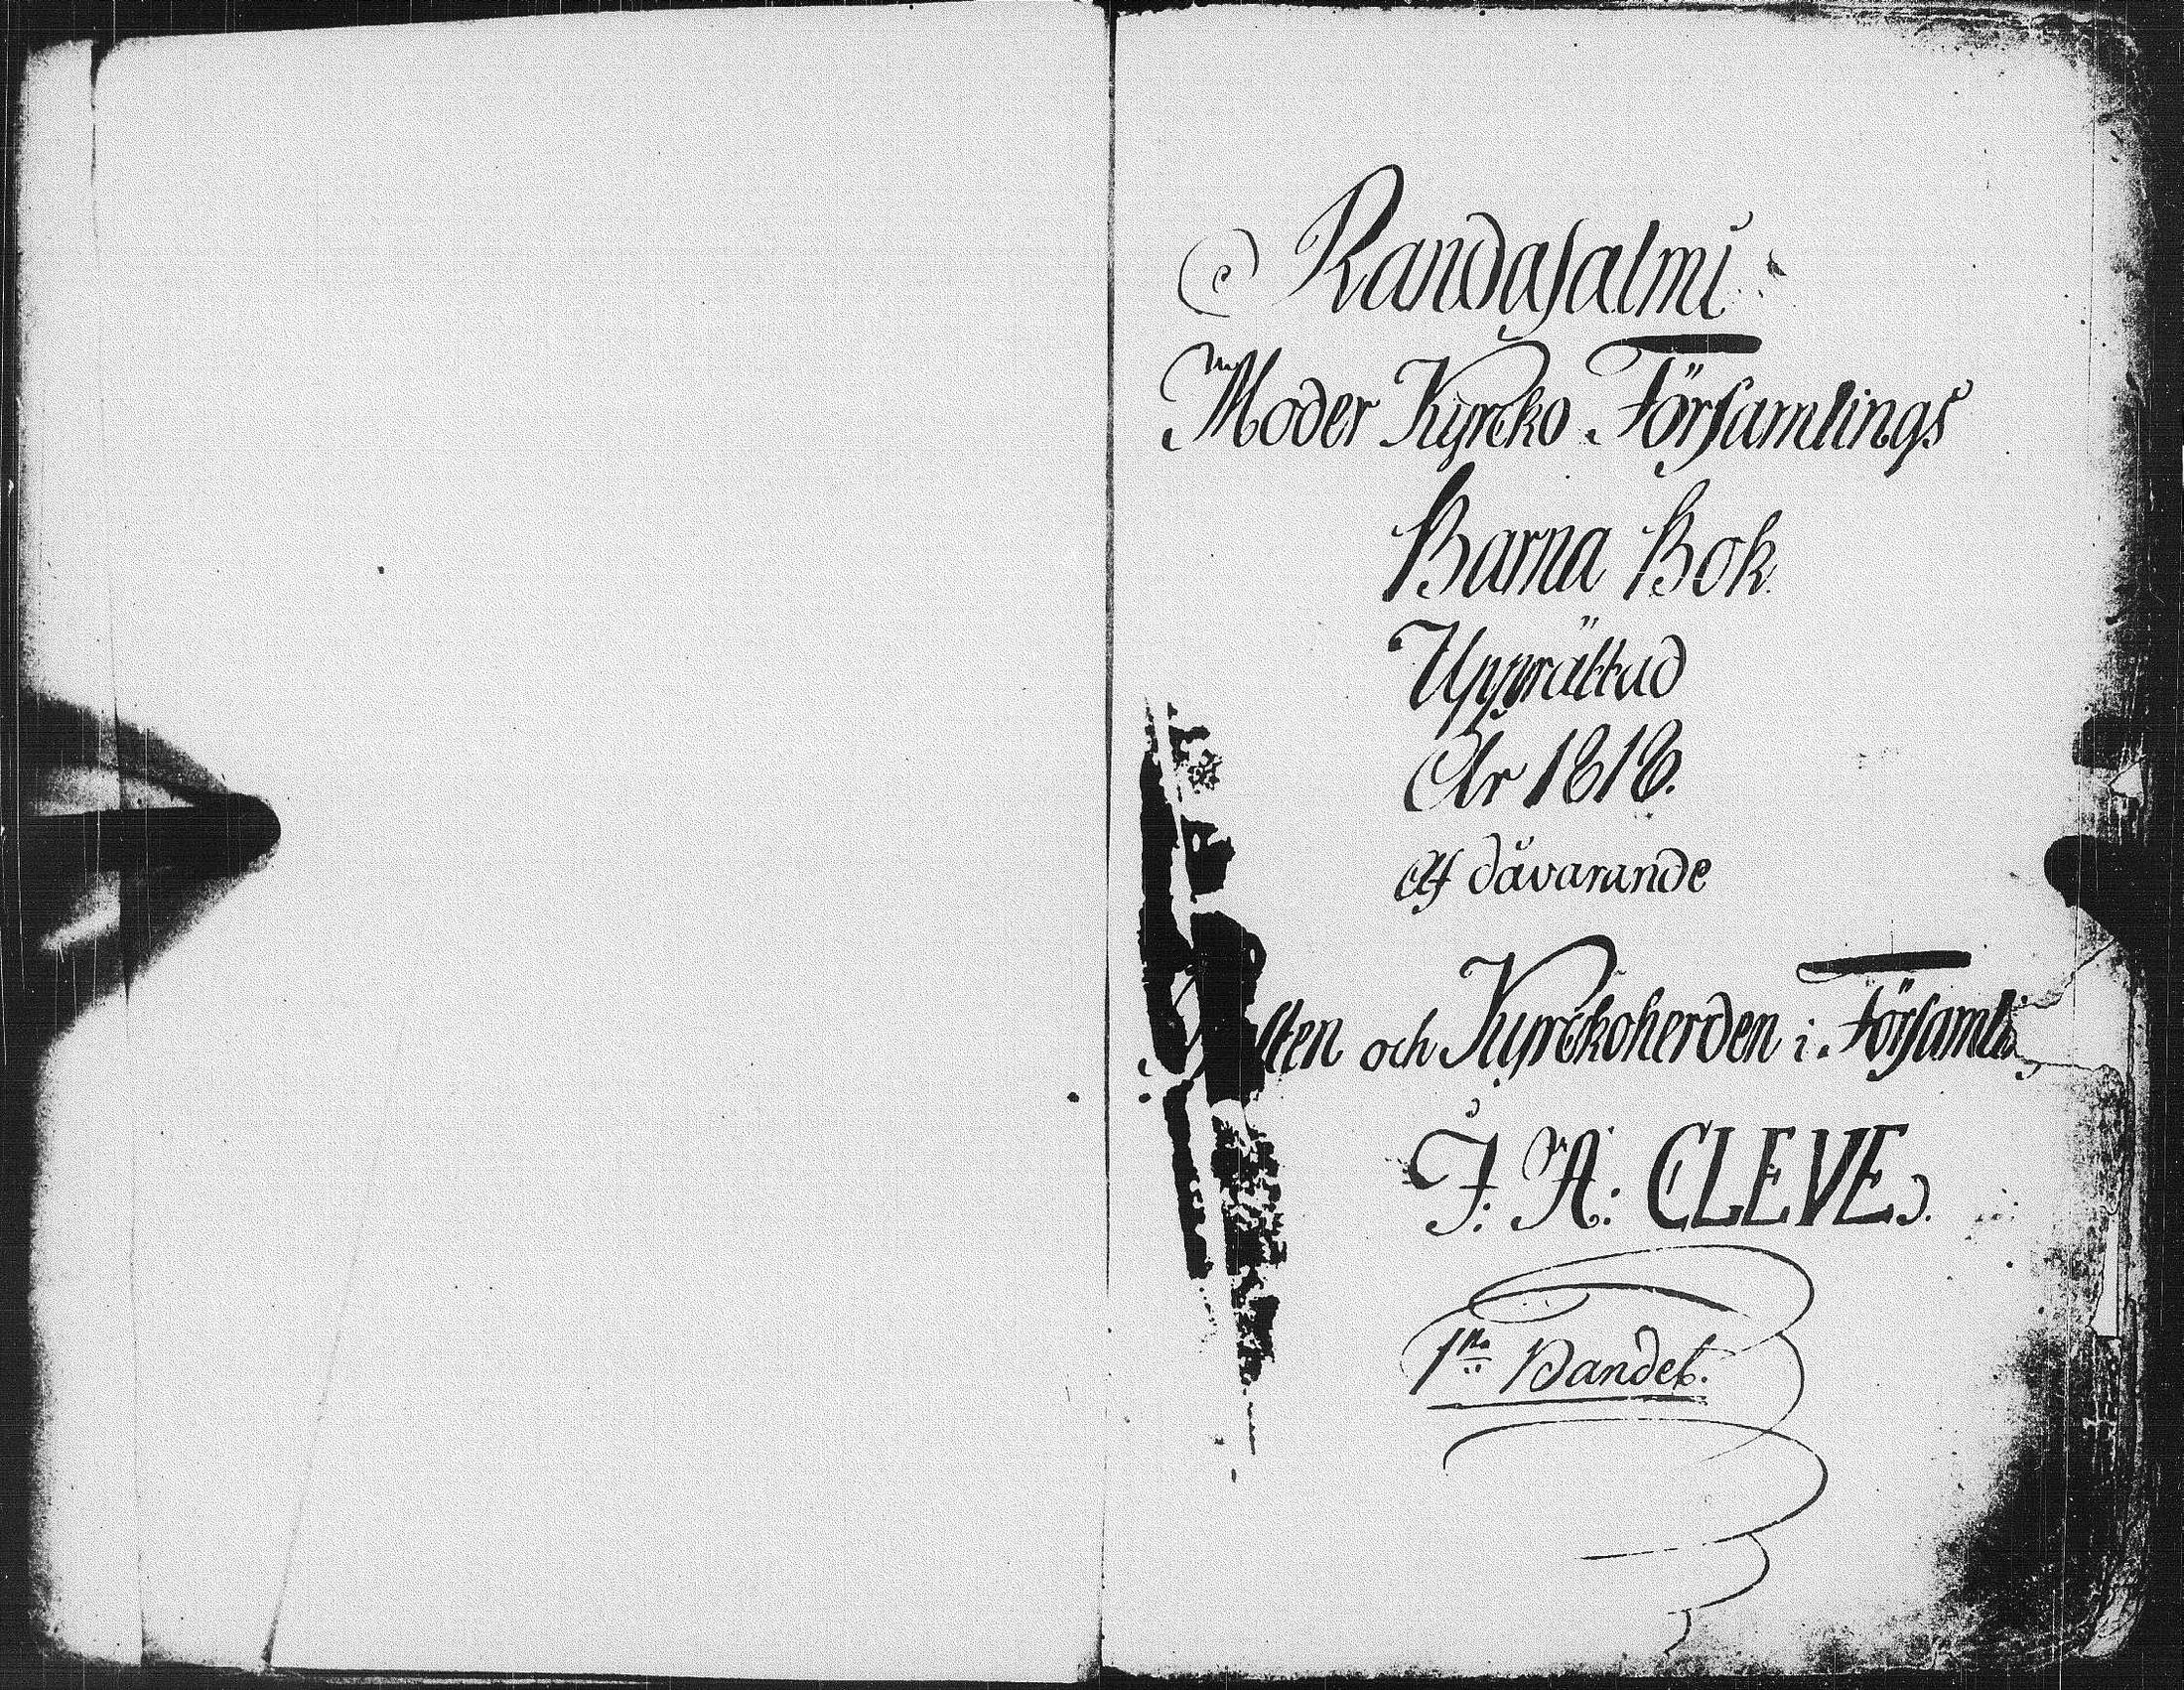 Randasalmi
Moder Kyrcko Församlings
Barna Bok
Upprättad
År 1818.
Af dåvarande
och Kyrckoherden i Församl
J: A: CLEVE.
1sta Bandet.